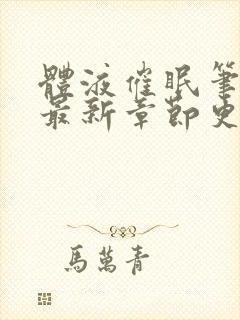 體液催眠筆
最新章節史
馬萬青